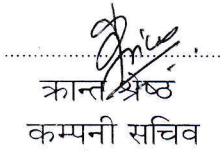 क्रान्त श्रेष्ठ
कम्पनी सचिव